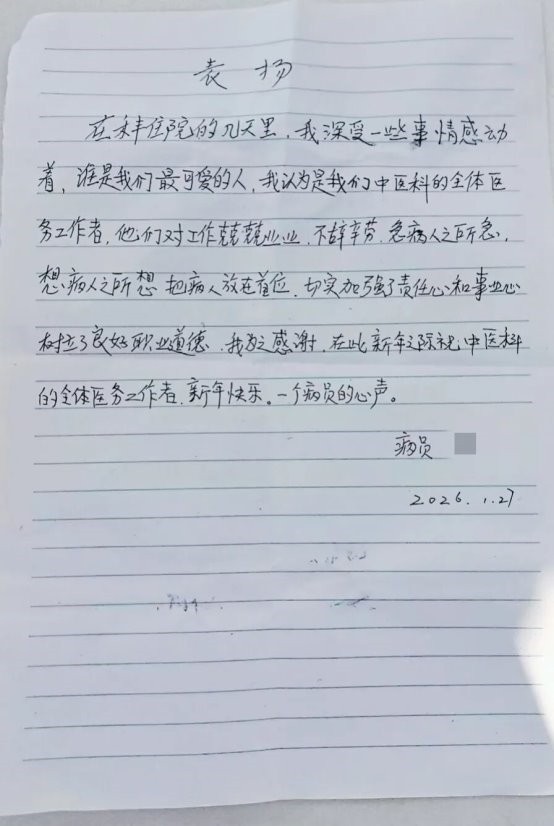 表扬
在丰住院的几天里，我深受一些事情感动
着，谁是我们最可爱的人，我认为是我们中医科的全体医
务工作者，他们对工作兢兢业业，不辞辛劳，急病人之所急，
想病人之所想，把病人放在首位，切实加强了责任心和事业心
树立了良好职业道德，我表感谢，在此新年之际祝中医科
的全体医务工作者，新年快乐。一个病员的心声。
病员
2026.1.27